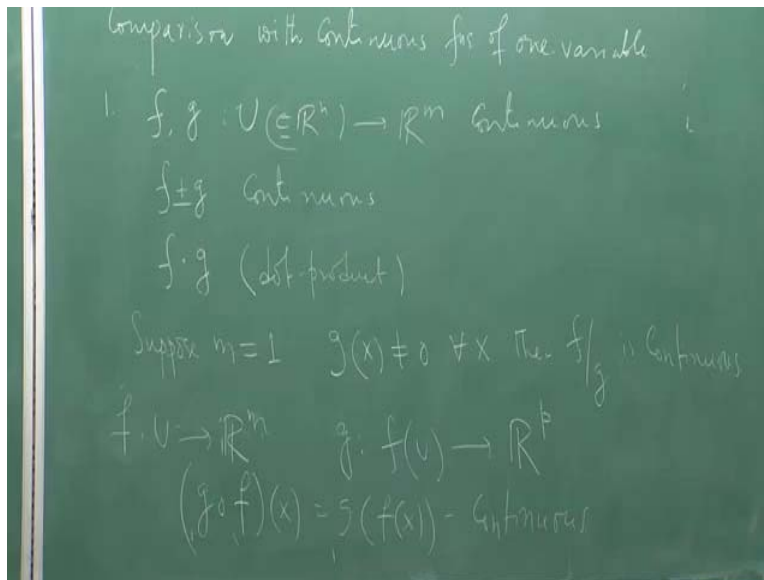 Comparison with Continuous fns of one variable
1. f, g : U(⊆ℝⁿ) → ℝᵐ Continuous
f±g Continuous
f·g (dot-product)
Suppose m=1 g(x) ≠ 0 ∀x Then f/g is Continuous
f: U → ℝᵐ g: f(U) → ℝᵖ
(g∘f)(x) = g(f(x)) - Continuous